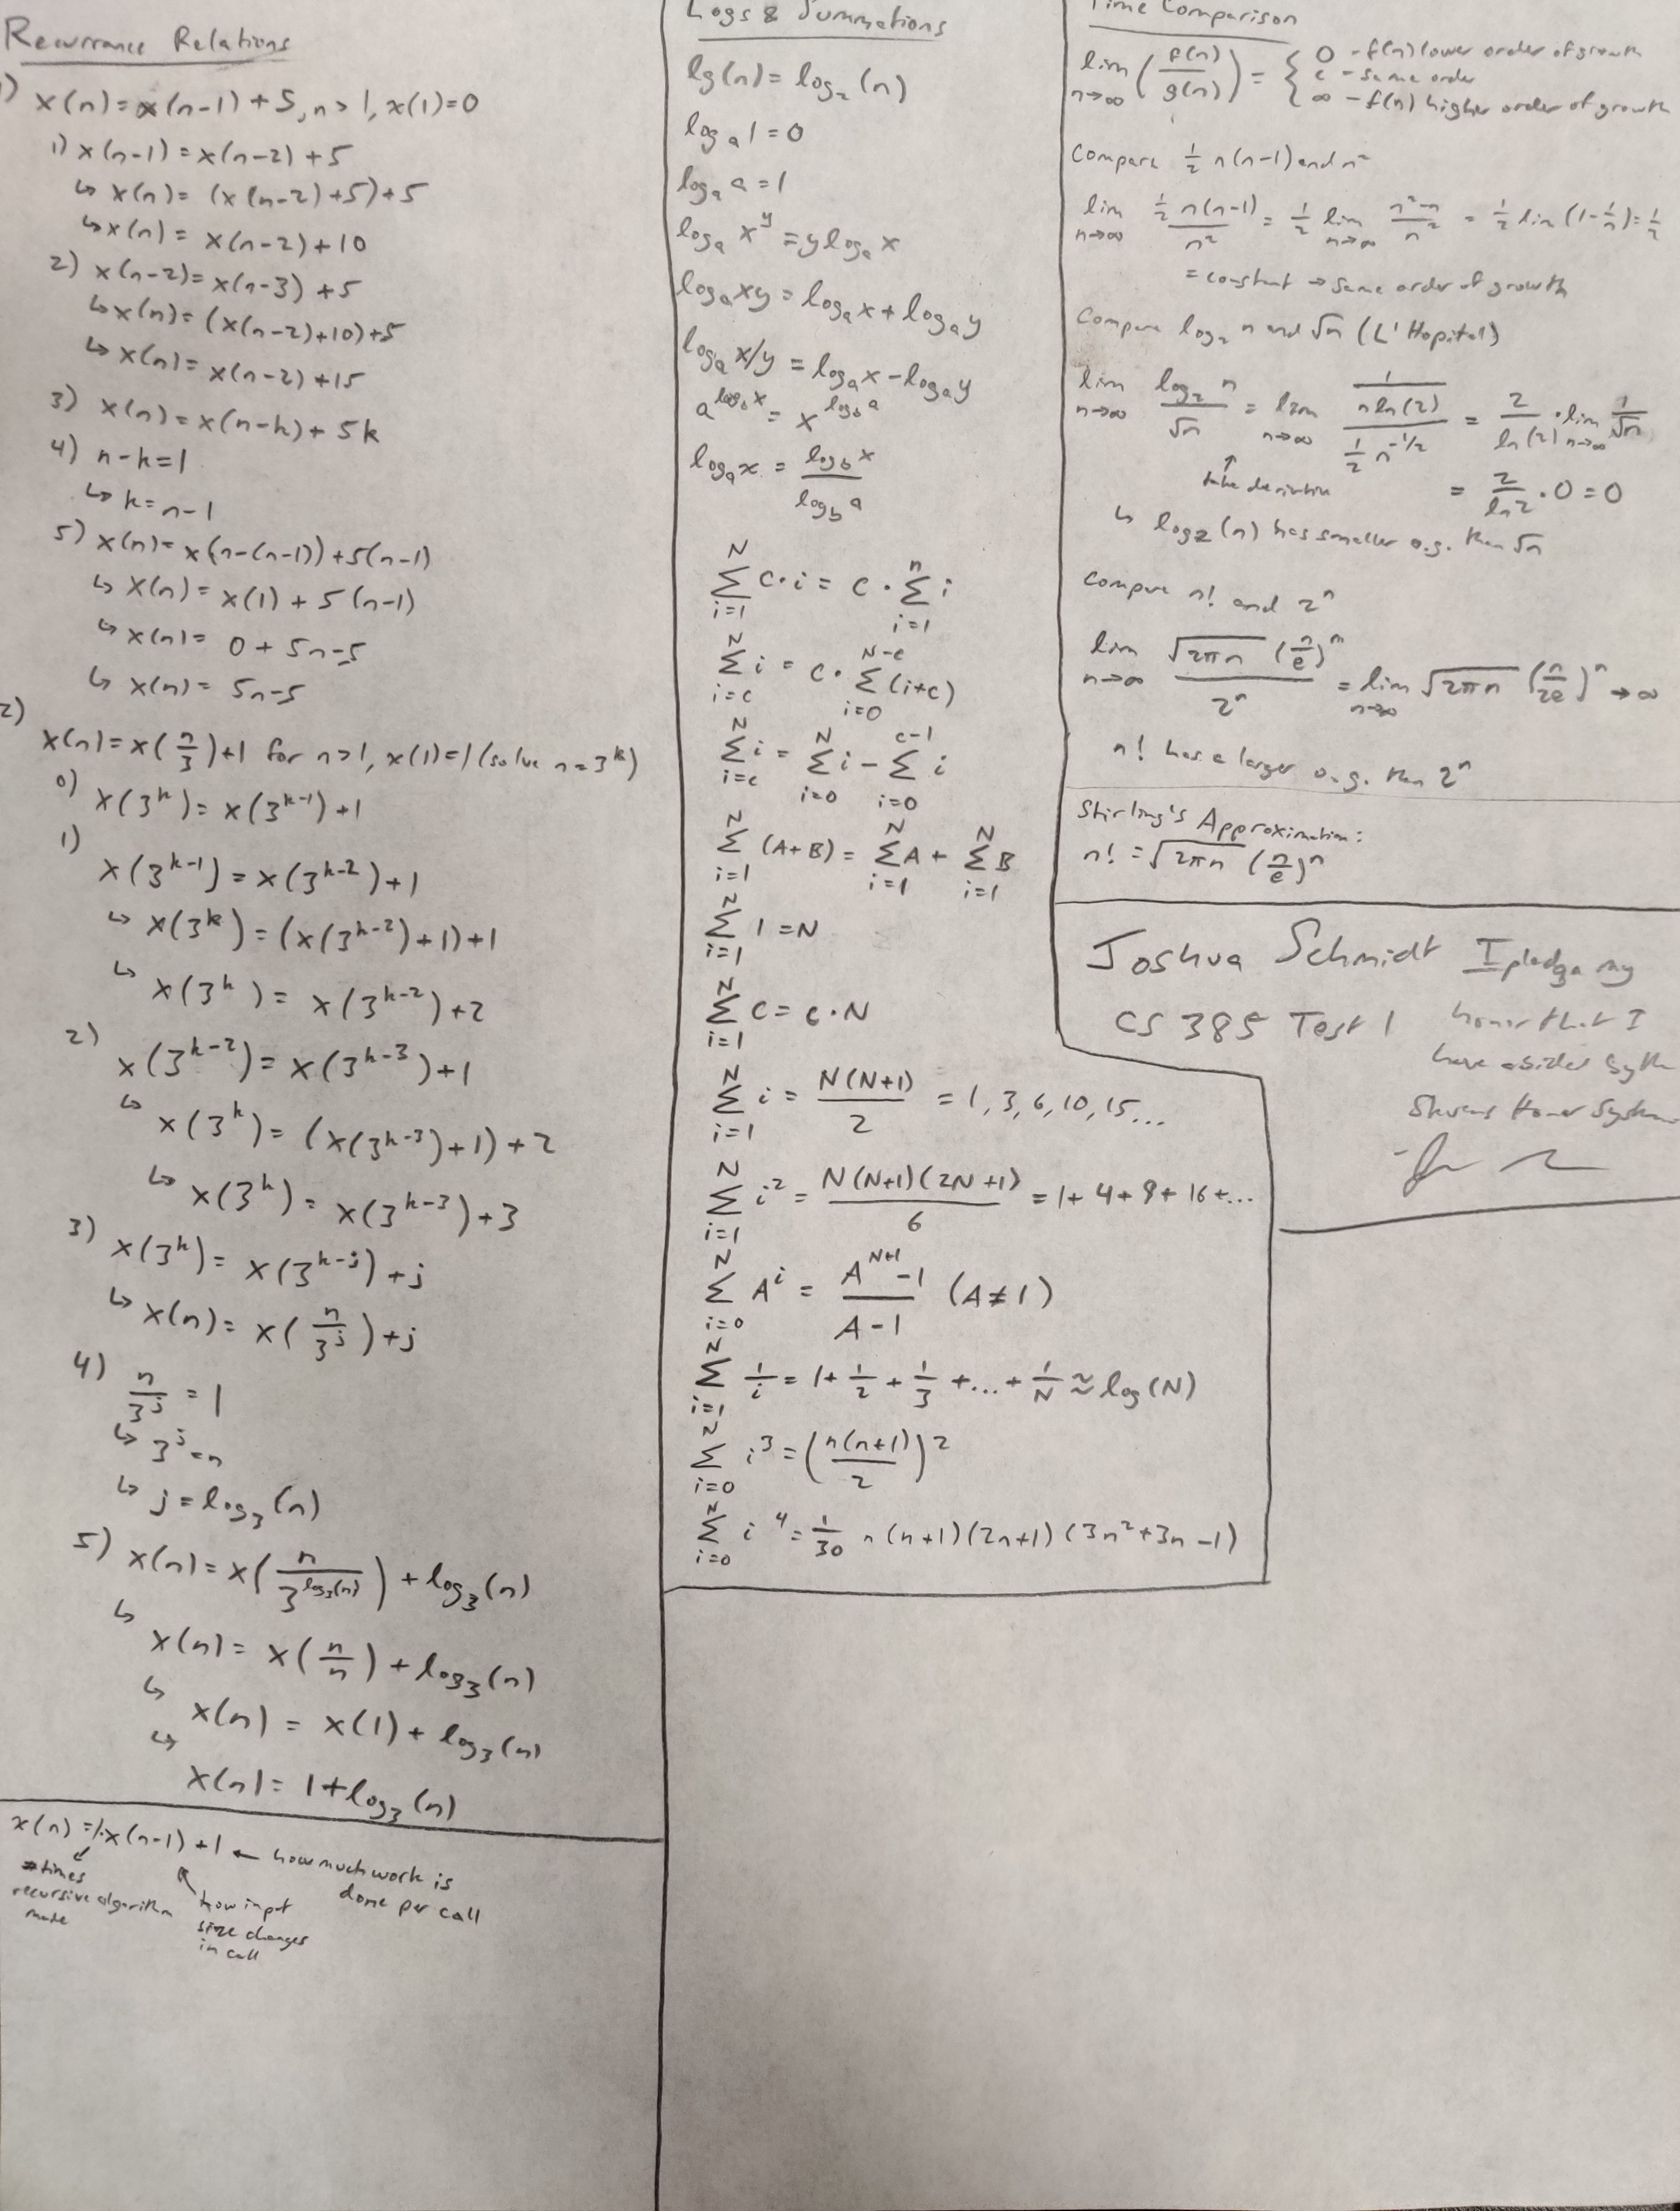 Recurrance Relations
1) x(n) = x(n-1) + 5, n > 1, x(1)=0
1) x(n-1) = x(n-2) + 5
↳ x(n) = (x(n-2)+5)+5
↳ x(n) = x(n-2) + 10
2) x(n-2) = x(n-3) + 5
↳ x(n) = (x(n-2)+10)+5
↳ x(n) = x(n-2) + 15
3) x(n) = x(n-k) + 5k
4) n-k=1
↳ k=n-1
5) x(n) = x(n-(n-1)) + 5(n-1)
↳ x(n) = x(1) + 5(n-1)
↳ x(n) = 0 + 5n-5
↳ x(n) = 5n-5
2)
x(n) = x(n/3)+1 for n>1, x(1)=1 (solve n=3^k)
0) x(3^k) = x(3^(k-1)) + 1
1)
x(3^(k-1)) = x(3^(k-2)) + 1
↳ x(3^k) = (x(3^(k-2))+1)+1
↳ x(3^k) = x(3^(k-2)) + 2
2)
x(3^(k-2)) = x(3^(k-3)) + 1
↳ x(3^k) = (x(3^(k-3))+1) + 2
↳ x(3^k) = x(3^(k-3)) + 3
3) x(3^k) = x(3^(k-j)) + j
↳ x(n) = x(n/3^j) + j
4) n/3^j = 1
↳ 3^j = n
↳ j = log₃(n)
5) x(n) = x(n/3^(log₃(n))) + log₃(n)
↳ x(n) = x(n/n) + log₃(n)
↳ x(n) = x(1) + log₃(n)
↳ x(n) = 1 + log₃(n)
x(n) = 1·x(n-1) + 1 ← how much work is
done per call
#times
recursive algorithm
made
how input
size changes
in call
Logs & Summations
lg(n) = log₂(n)
log_a 1 = 0
log_a a = 1
log_a x^y = y log_a x
log_a xy = log_a x + log_a y
log_a x/y = log_a x - log_a y
a^(log_b x) = x^(log_b a)
log_a x = log_b x / log_b a
∑_{i=1}^{N} c·i = c · ∑_{i=1}^{n} i
∑_{i=c}^{N} i = c · ∑_{i=0}^{N-c} (i+c)
∑_{i=c}^{N} i = ∑_{i=0}^{N} i - ∑_{i=0}^{c-1} i
∑_{i=1}^{N} (A+B) = ∑_{i=1}^{N} A + ∑_{i=1}^{N} B
∑_{i=1}^{N} 1 = N
∑_{i=1}^{N} c = c·N
∑_{i=1}^{N} i = N(N+1)/2 = 1, 3, 6, 10, 15...
∑_{i=1}^{N} i² = N(N+1)(2N+1)/6 = 1+4+9+16+...
∑_{i=0}^{N} A^i = (A^(N+1) - 1)/(A-1) (A≠1)
∑_{i=1}^{N} 1/i = 1 + 1/2 + 1/3 + ... + 1/N ≈ log(N)
∑_{i=0}^{N} i³ = (n(n+1)/2)²
∑_{i=0}^{N} i⁴ = 1/30 n(n+1)(2n+1)(3n²+3n-1)
Time Comparison
lim_{n→∞} (f(n)/g(n)) = { 0 - f(n) lower order of growth
c - same order
∞ - f(n) higher order of growth
Compare ½ n(n-1) and n²
lim_{n→∞} ½n(n-1)/n² = ½ lim_{n→∞} (n²-n)/n² = ½ lim (1-1/n) = ½
= constant → same order of growth
Compare log₂ n and √n (L'Hopital)
lim_{n→∞} log₂ n/√n = lim_{n→∞} (1/(n ln(2)))/(½ n^(-1/2)) = 2/ln(2) · lim_{n→∞} 1/√n
↑
take derivative
= 2/ln2 · 0 = 0
↳ log2(n) has smaller o.g. than √n
Compare n! and 2^n
lim_{n→∞} √(2πn) (n/e)^n / 2^n = lim_{n→∞} √(2πn) (n/2e)^n → ∞
n! has a larger o.g. than 2^n
Stirling's Approximation:
n! = √(2πn) (n/e)^n
Joshua Schmidt
CS 385 Test 1
I pledge my
honor that I
have abided by the
Stevens Honor System